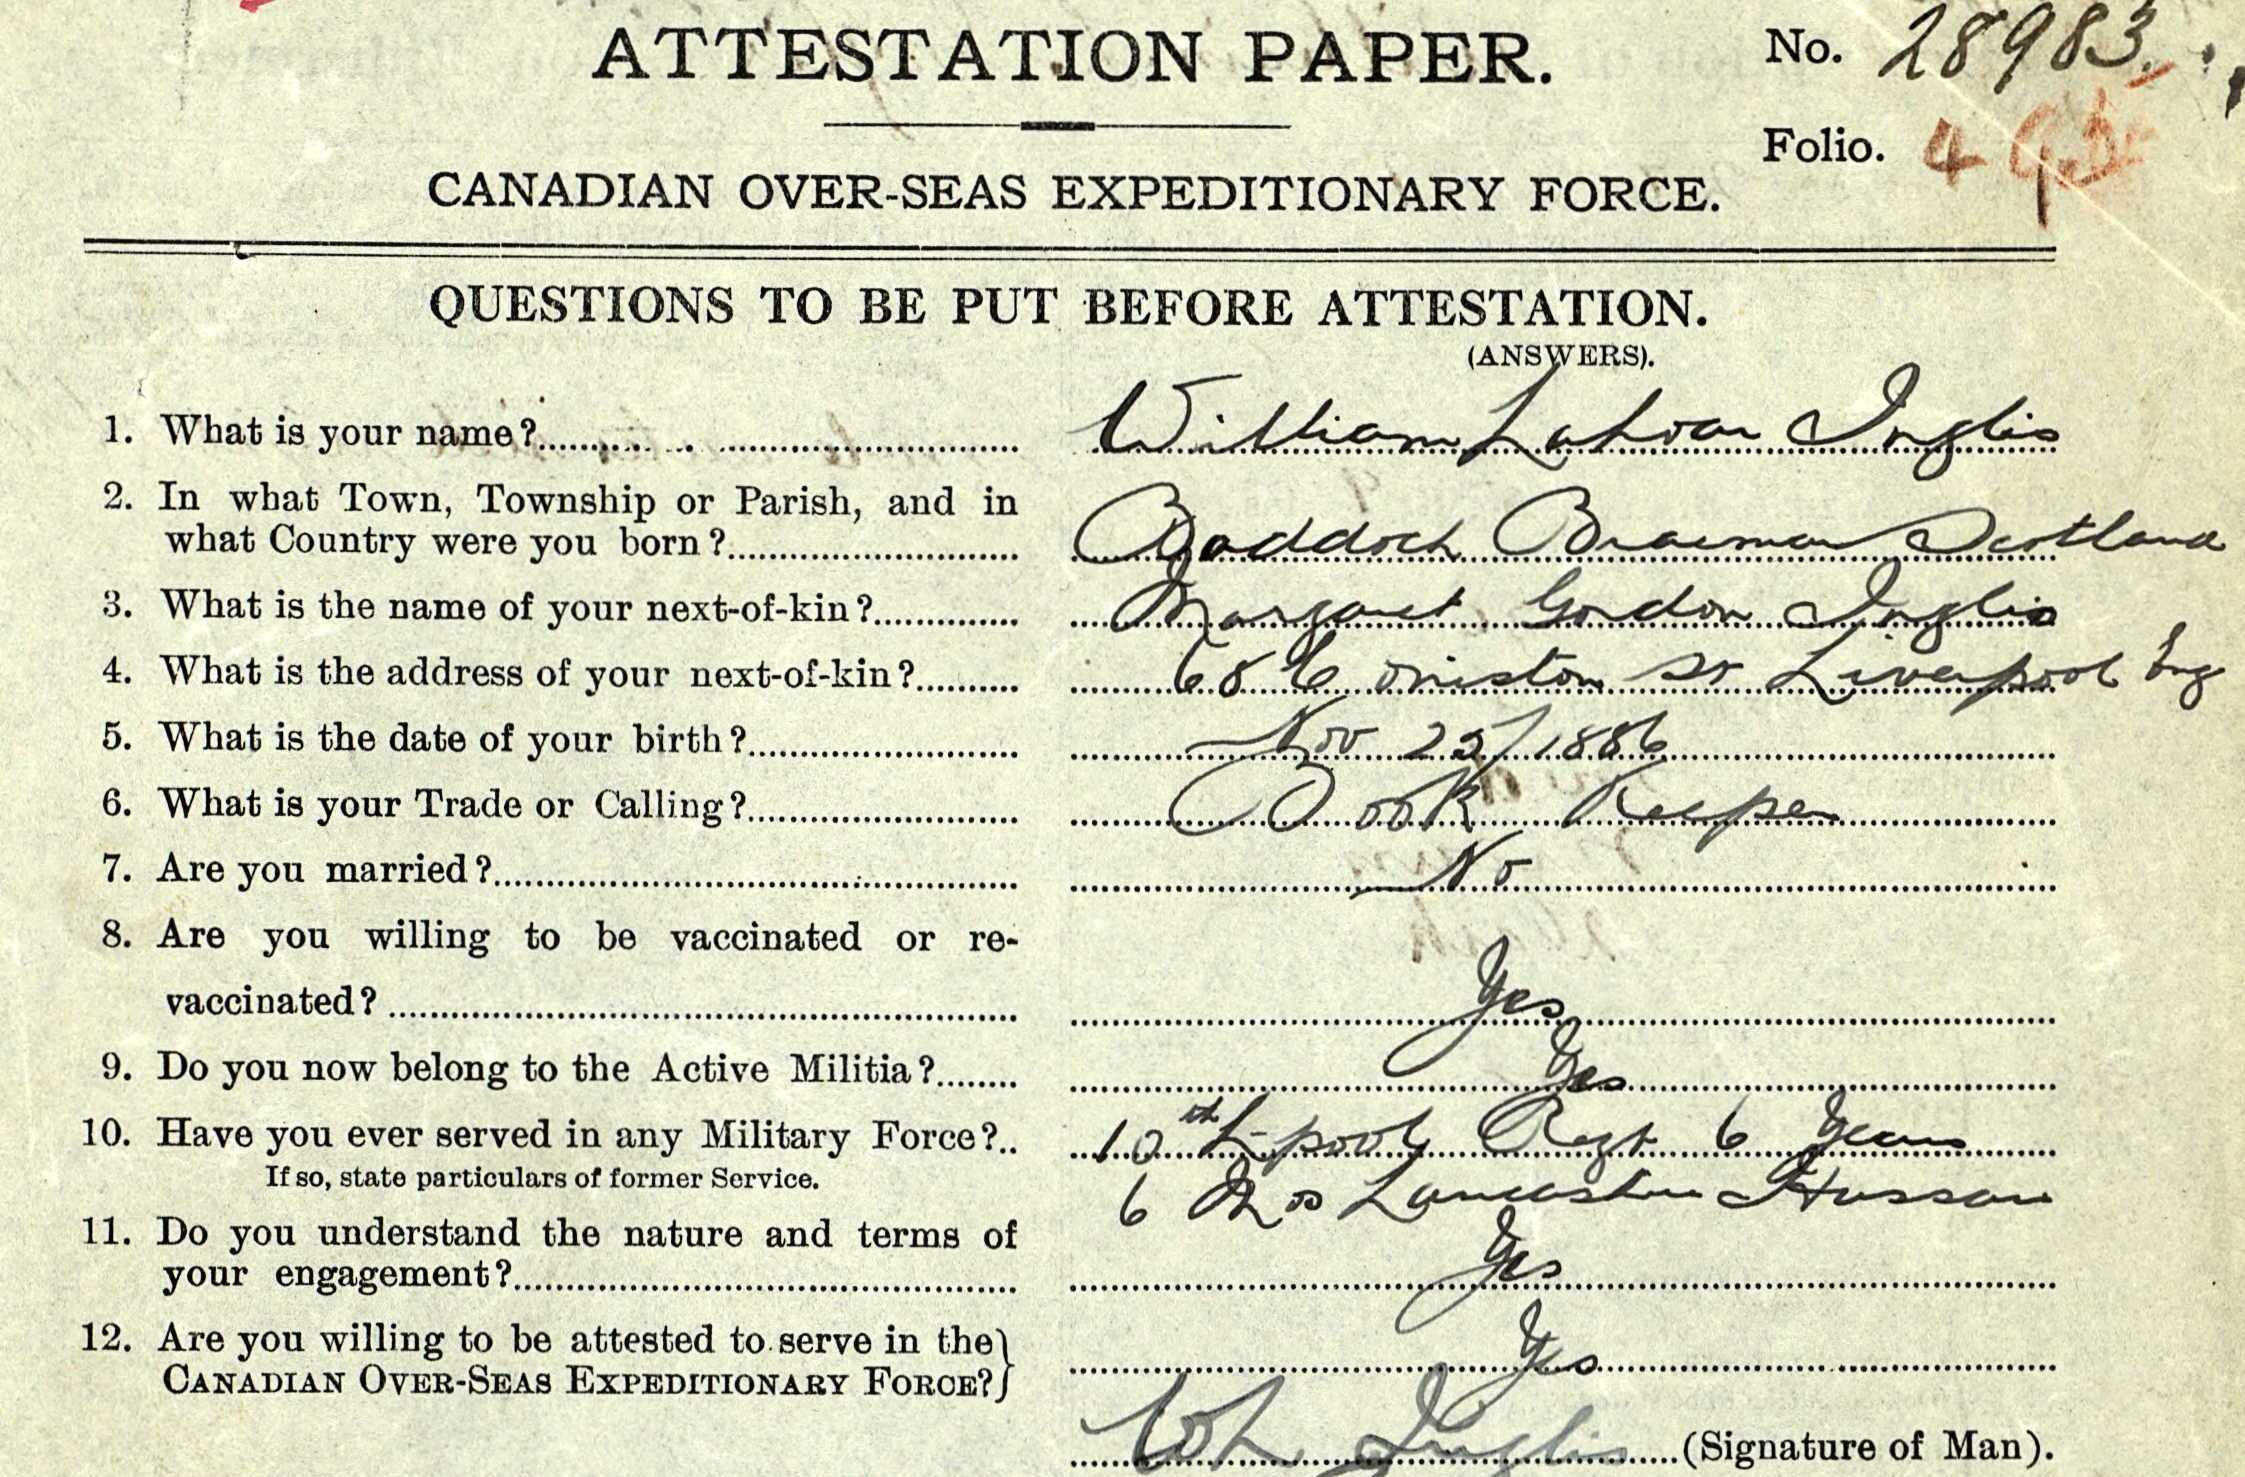 ATTESTATION PAPER.
No. 28983.
Folio. 4
CANADIAN OVER-SEAS EXPEDITIONARY FORCE.
QUESTIONS TO BE PUT BEFORE ATTESTATION.
(ANSWERS).
1. What is your name? William Inglis
2. In what Town, Township or Parish, and in
what Country were you born? Baddoch Braemar Scotland
3. What is the name of your next-of-kin? Margaret Gordon Inglis
4. What is the address of your next-of-kin? 68 Coniston St Liverpool Eng
5. What is the date of your birth? Nov 25/1886
6. What is your Trade or Calling? Book Keeper
7. Are you married? No
8. Are you willing to be vaccinated or re-
vaccinated? Yes
9. Do you now belong to the Active Militia? Yes
10. Have you ever served in any Military Force? 10th L-pool Regt 6 Years
If so, state particulars of former Service. 6 Mos Lancashire Hussars
11. Do you understand the nature and terms of
your engagement? Yes
12. Are you willing to be attested to serve in the
CANADIAN OVER-SEAS EXPEDITIONARY FORCE? Yes
WL Inglis (Signature of Man).